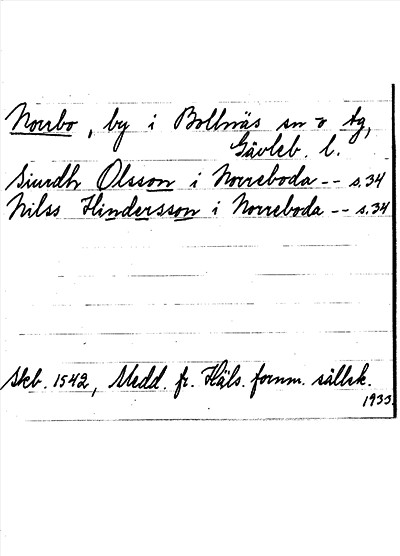 Norrbo, by i Bollnäs sn o tg,
Gävleb. l.
Siurdh Olsson i Norreboda -- s. 34
Nilss Hindersson i Norreboda -- s. 34
Skb. 1542, Medd. fr. Häls. fornm. sällsk.
1933.